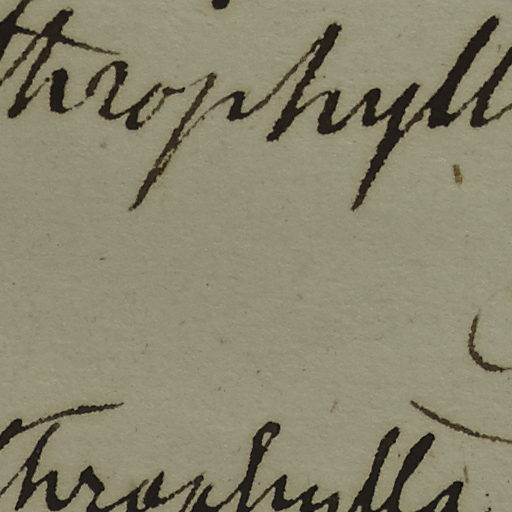 throphyll
throphylla